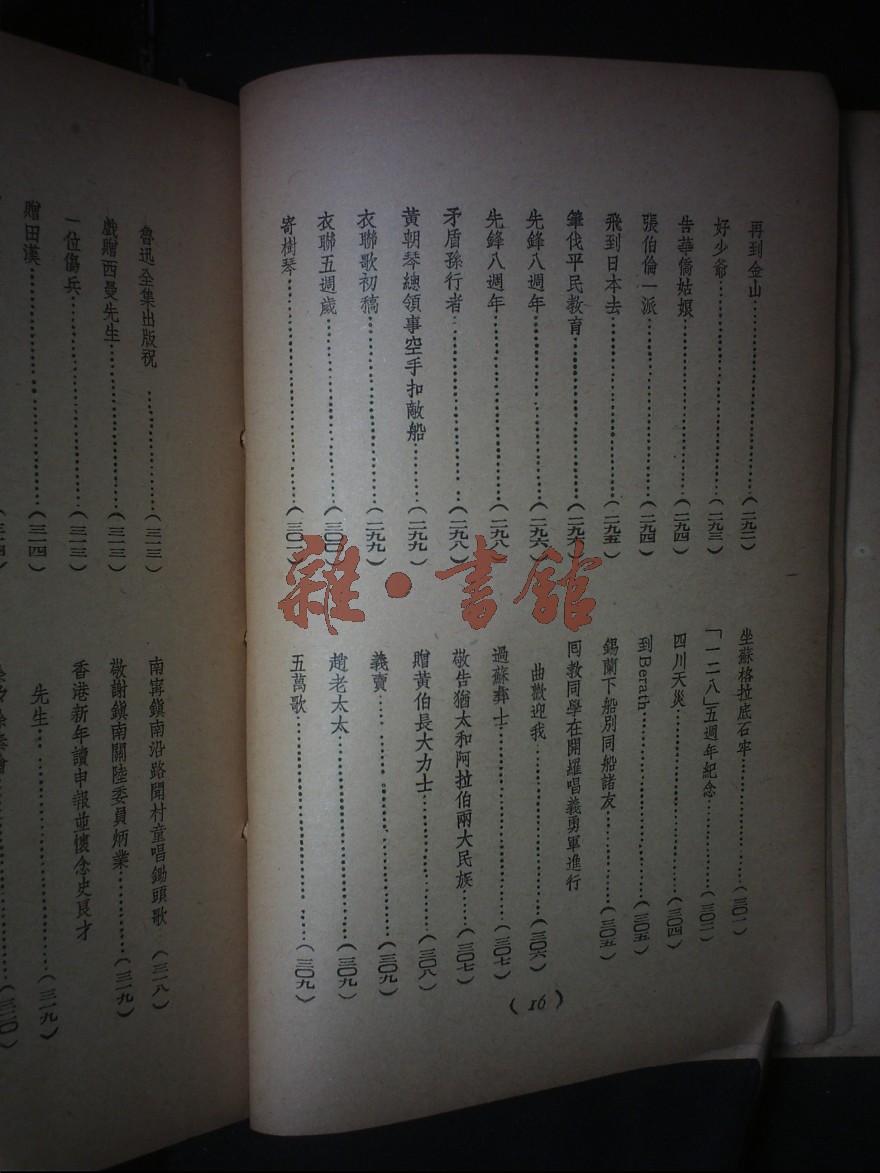 再到金山……(二九二)
好少爺……(二九三)
告華僑姑娘……(二九四)
張伯倫一派……(二九四)
飛到日本去……(二九五)
筆伐平民教育……(二九六)
先鋒八週年……(二九六)
先鋒八週年……(二九八)
矛盾孫行者……(二九八)
黃朝琴總領事空手扣敵船……(二九九)
衣聯歌初稿……(二九九)
衣聯五週歲……(三〇〇)
寄樹琴……(三〇一)
坐蘇格拉底石牢……(三〇一)
「一二八」五週年紀念……(三〇二)
四川天災……(三〇四)
到Berath……(三〇五)
錫蘭下船別同船諸友……(三〇五)
囘教同學在開羅唱義勇軍進行
曲歡迎我……(三〇六)
過蘇彝士……(三〇七)
敬告猶太和阿拉伯兩大民族……(三〇七)
贈黃伯長大力士……(三〇八)
義賣……(三〇九)
趙老太太……(三〇九)
五萬歌……(三〇九)
(16)
雜·書館
魯迅全集出版祝……(三一三)
戲贈西曼先生……(三一三)
一位傷兵……(三一三)
贈田漢……(三一四)
南寧鎮南沿路聞村童唱鋤頭歌(三一八)
敬謝鎮南關陸委員炳業……(三一九)
香港新年讀申報並懷念史良才
先生……(三一九)